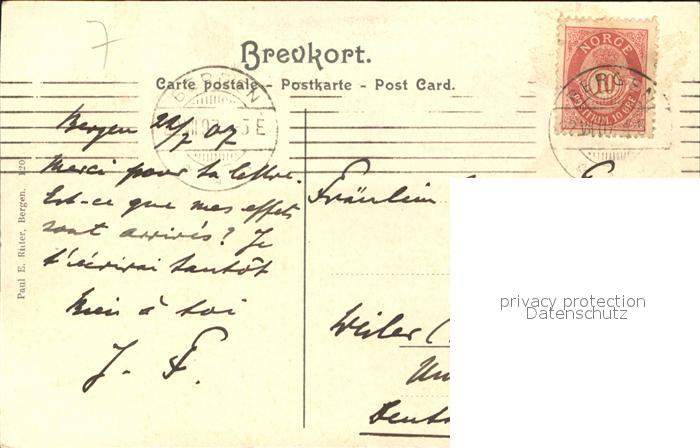 7
Brevkort.
Carte postale - Postkarte - Post Card.
NORGE
10
BERGEN
Bergen 22/7 07
Merci pour ta lettre.
Est-ce que mes effets
sont arrivés? Je
t'écrirai tantôt
Bien à toi
J. F.
Fräulein
Weiler (
Paul E. Ritter, Bergen. 120
privacy protection
Datenschutz